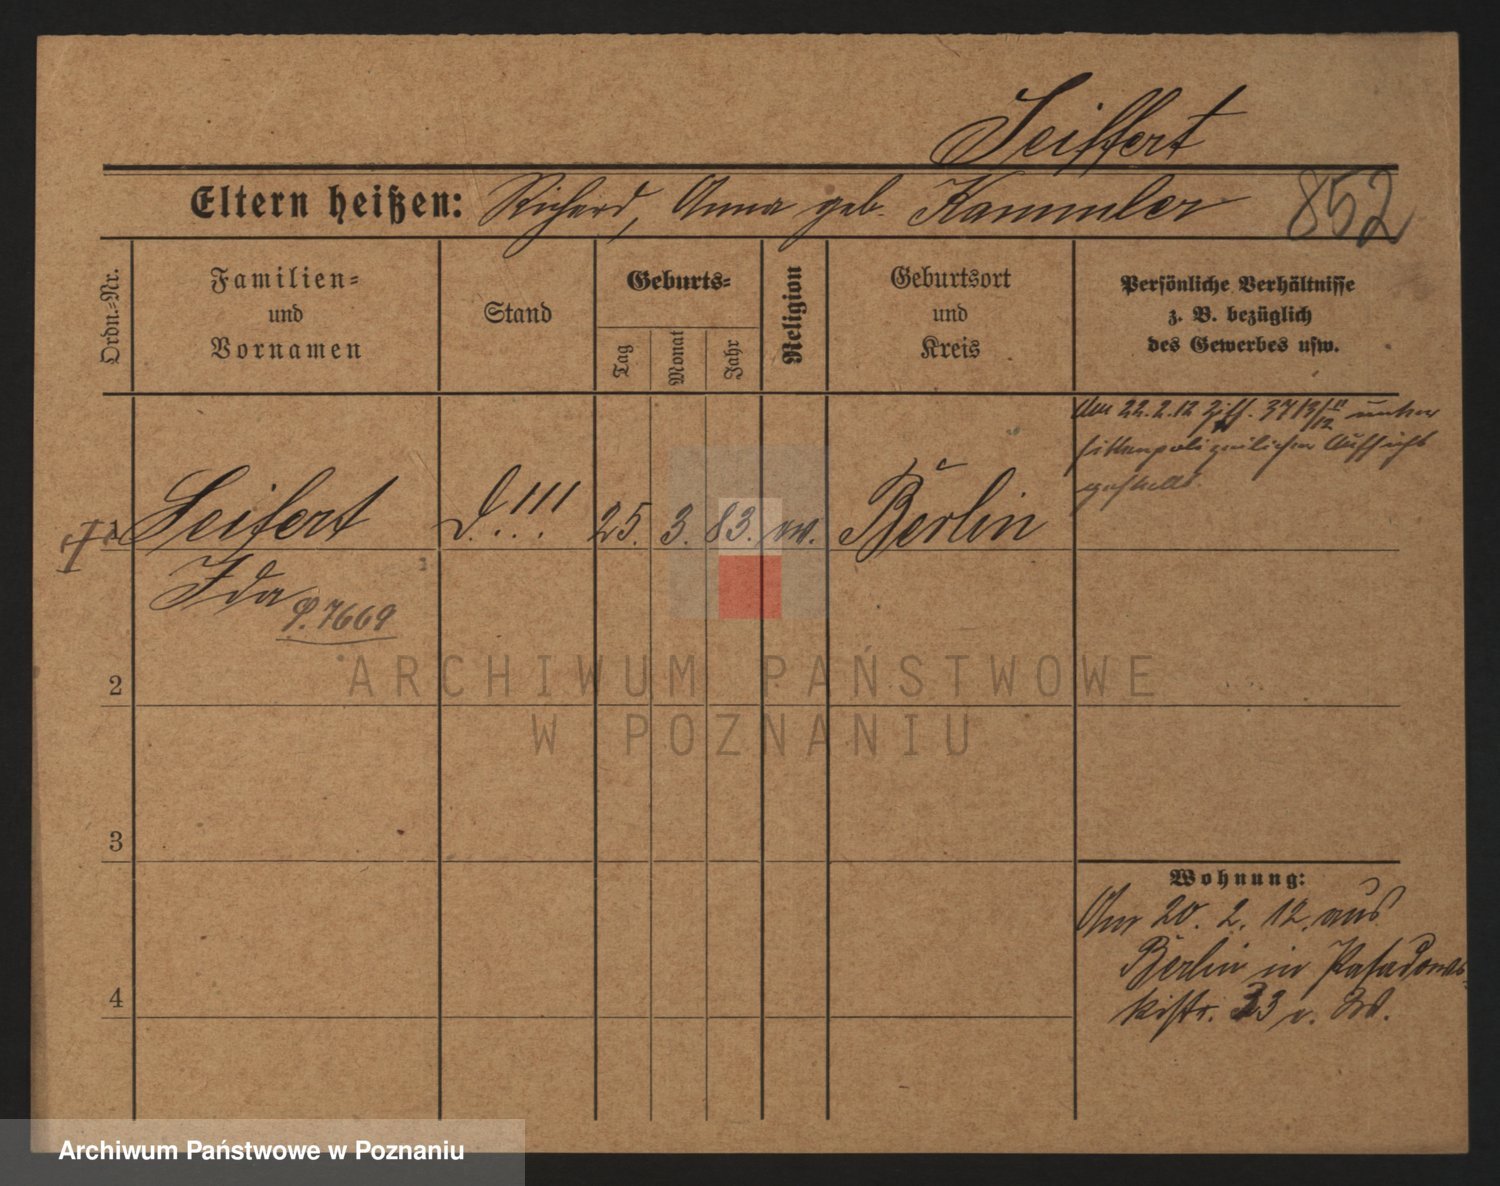 Seiffert
Eltern heißen: Richard, Anna geb. Kammler 852
Ordn.-Nr.
Familien-
und
Vornamen
Stand
Geburts-
Tag
Monat
Jahr
Religion
Geburtsort
und
Kreis
Persönliche Verhältnisse
z. B. bezüglich
des Gewerbes usw.
Am 22.2.12 unter
sittenpolizeilicher Aufsicht
gestellt.
Seifert !!! 25. 3. 83. ev. Berlin
Ida
P. 7669
2
3
4
Wohnung:
Am 20. 2. 12. aus
Berlin in
33
ARCHIWUM PAŃSTWOWE
W POZNANIU
Archiwum Państwowe w Poznaniu